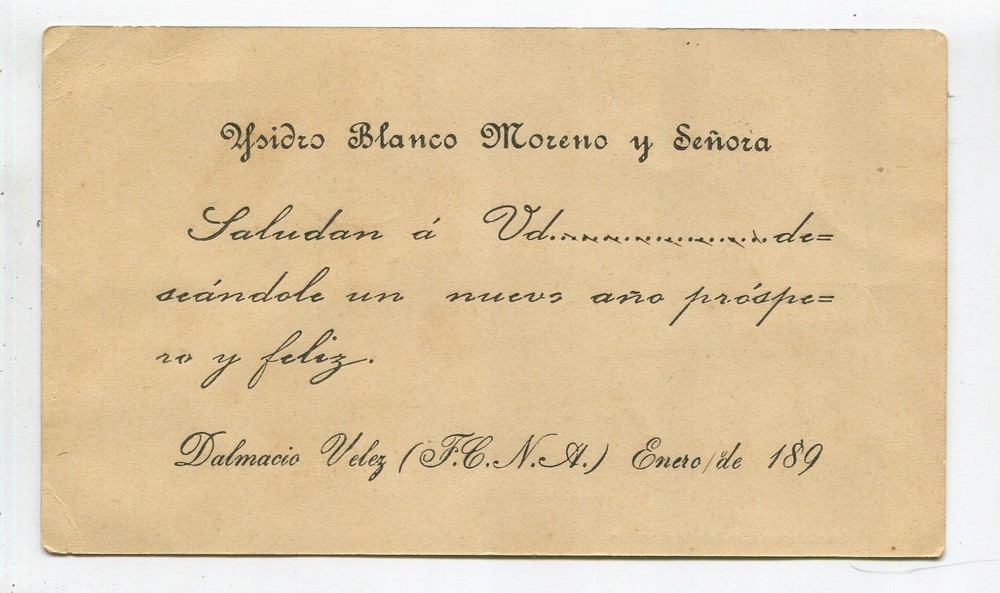 Ysidro Blanco Moreno y Señora
Saludan á Vd......................de=
seándole un nuevo año próspe=
ro y feliz.
Dalmacio Velez (F.C.N.A.) Enero 1º de 189